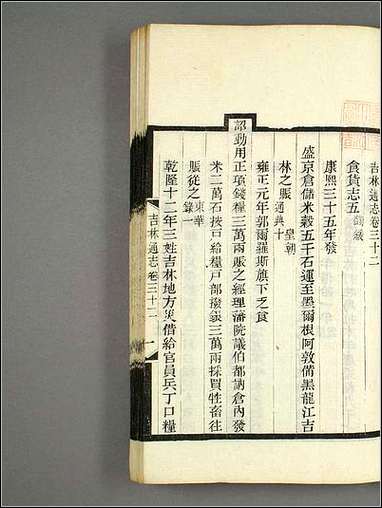 吉林通志卷三十二
食貨志五 蠲緩
康熙三十五年發
盛京倉儲米穀五千石運至墨爾根阿敦備黑龍江吉
林之賑 皇朝通典十
雍正元年郭爾羅斯旗下乏食
詔動用正項錢糧三萬兩賑之經理藩院議伯都訥倉內發
米二萬石按口給糧戶部撥銀三萬兩採買牲畜往
賑從之 東華錄一
乾隆十二年三姓吉林地方災借給官員兵丁口糧
吉林通志 卷三十二 一